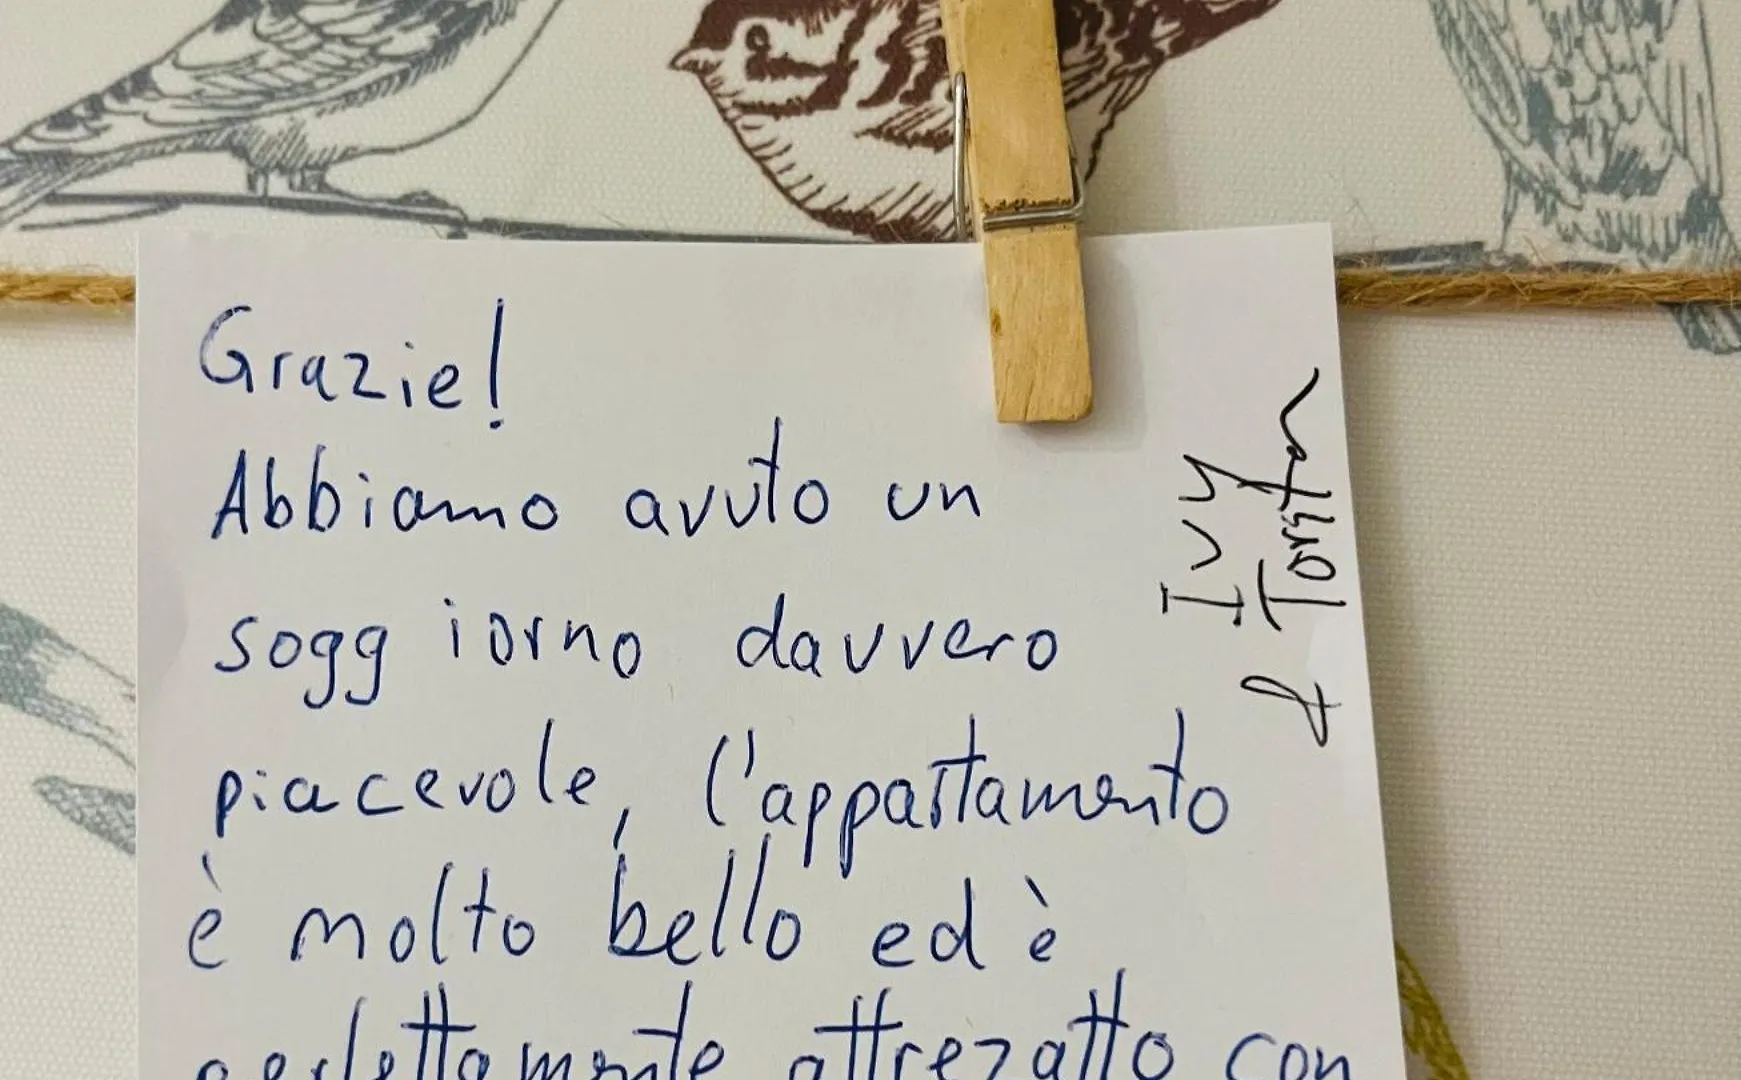 Grazie!
Abbiamo avuto un
soggiorno davvero
piacevole, l'appartamento
è molto bello ed è
perfettamente attrezzatto con
Ivy
&